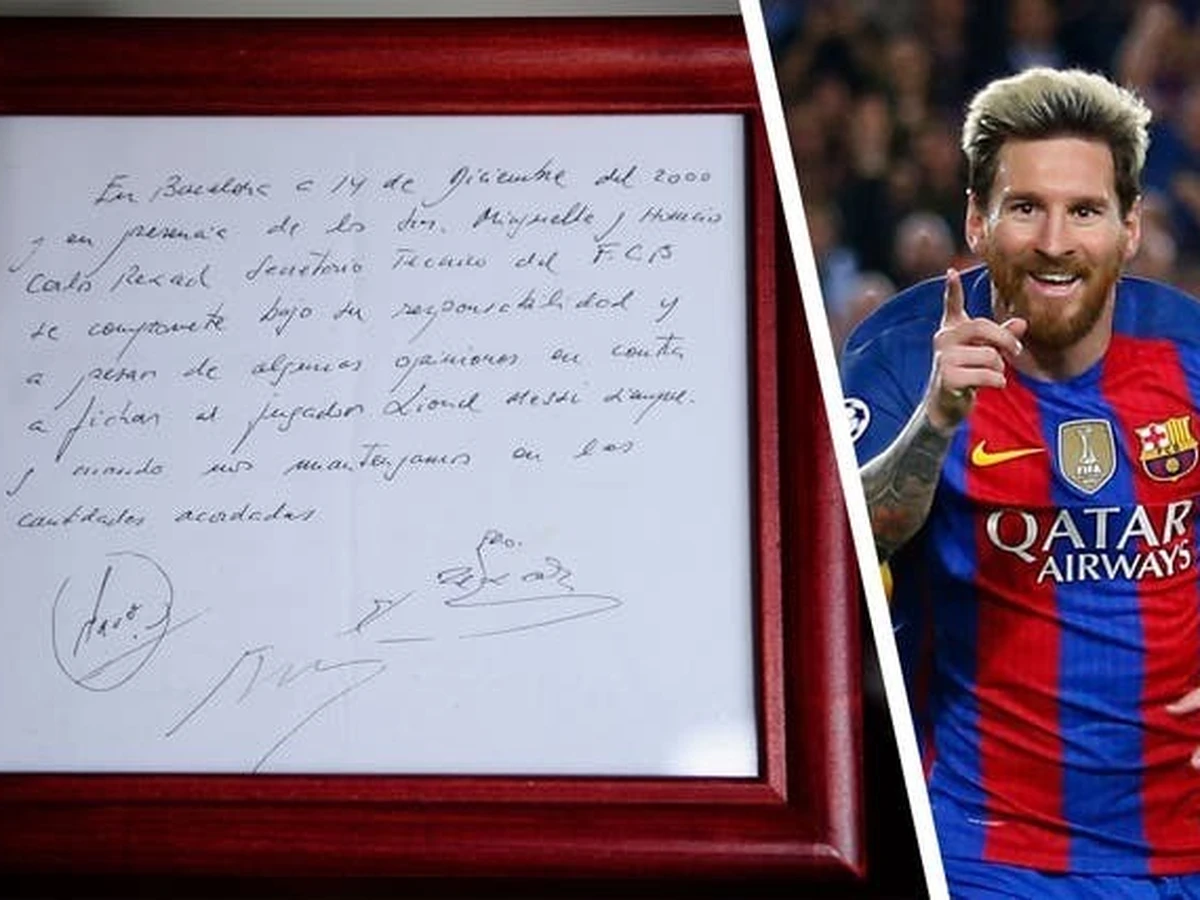 En Barcelona a 14 de Diciembre del 2000
y en presencia de los Srs. Minguella y Horacio
Carlos Rexach Secretario Tecnico del F.C.B
se compromete bajo su responsabilidad y
a pesar de algunas opiniones en contra
a fichar al jugador Lionel Messi siempre
y cuando nos mantengamos en las
cantidades acordadas
FIFA
QATAR
AIRWAYS